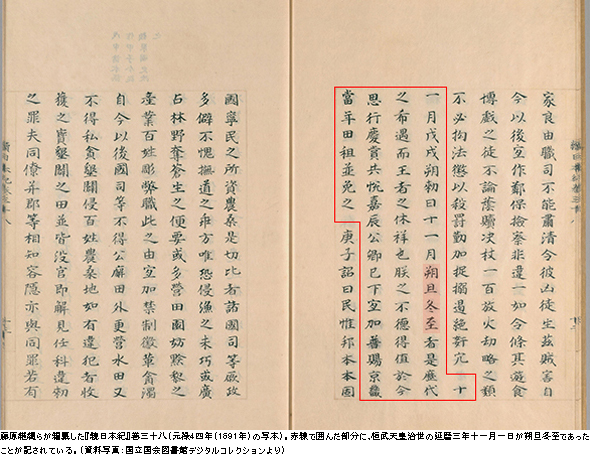 家良由職司不能肅清今彼凶徒生茲賊害自
今以後宜作鄰保檢察非違一如令條其遊食
博戲之徒不論蔭贖决杖一百放火劫略之類
不必拘法懲以殺罰勤加捉搦遏絶姧宄 十
一月戊戌朔勅曰十一月朔旦冬至者是歷代
之希遇而王者之休祥也朕之不德得值於今
思行慶賞共悅嘉辰公卿已下宜加賞賜京畿
當年田租並免之 庚子詔曰民惟邦本本固
國寧民之所資農桑是切比者諸國司等厥政
多僻不愧撫道之乖方唯恐侵漁之未巧或廣
占林野奪蒼生之便要或多營田園妨黔黎之
產業百姓彫弊職此之由宜加禁制懲革貪濁
自今以後國司等不得公廨田外更營水田又
不得私貪墾闢侵百姓農桑地如有違犯者收
獲之實墾闢之田並皆没官即解見任科違勅
之罪夫同僚并郡等相知容隱亦與同罪若有
藤原継縄らが編纂した『続日本紀』巻三十八(元禄4年(1691年)の写本)。赤線で囲んだ部分に、桓武天皇治世の延暦三年十一月一日が朔旦冬至であった
ことが記されている。(資料写真:国立国会図書館デジタルコレクションより)